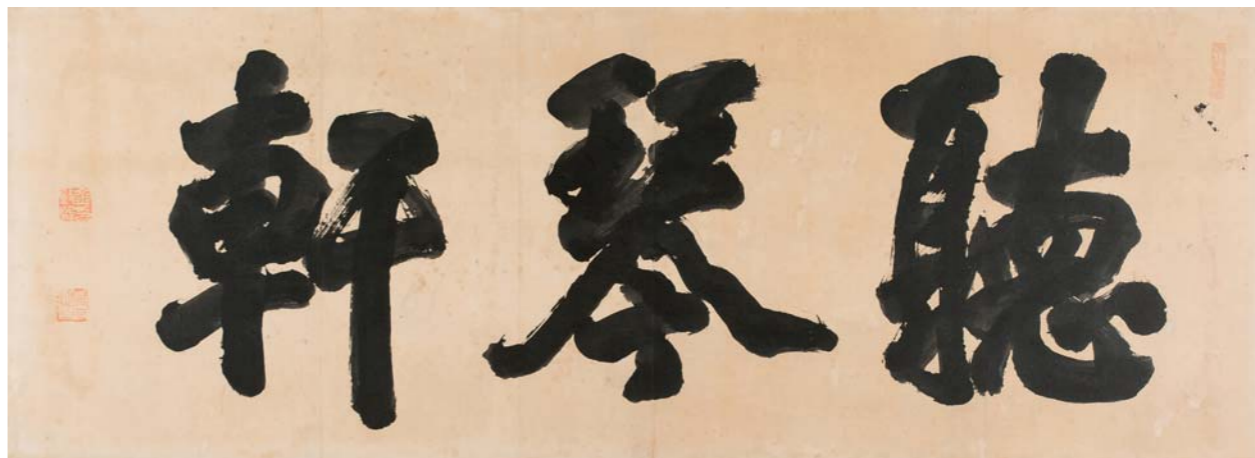 聽琴軒